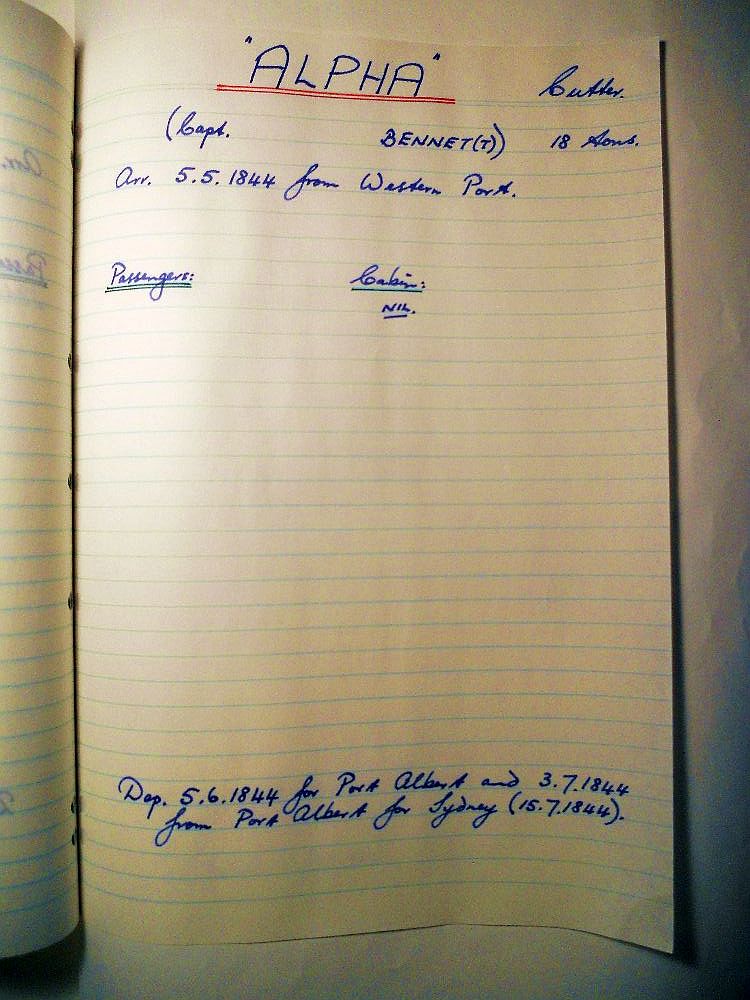 "ALPHA" Cutter.
(Capt. BENNET(T)) 18 tons.
Arr. 5.5.1844 from Western Port.
Passengers: Cabin:
NIL.
Dep. 5.6.1844 for Port Albert and 3.7.1844
from Port Albert for Sydney (15.7.1844).